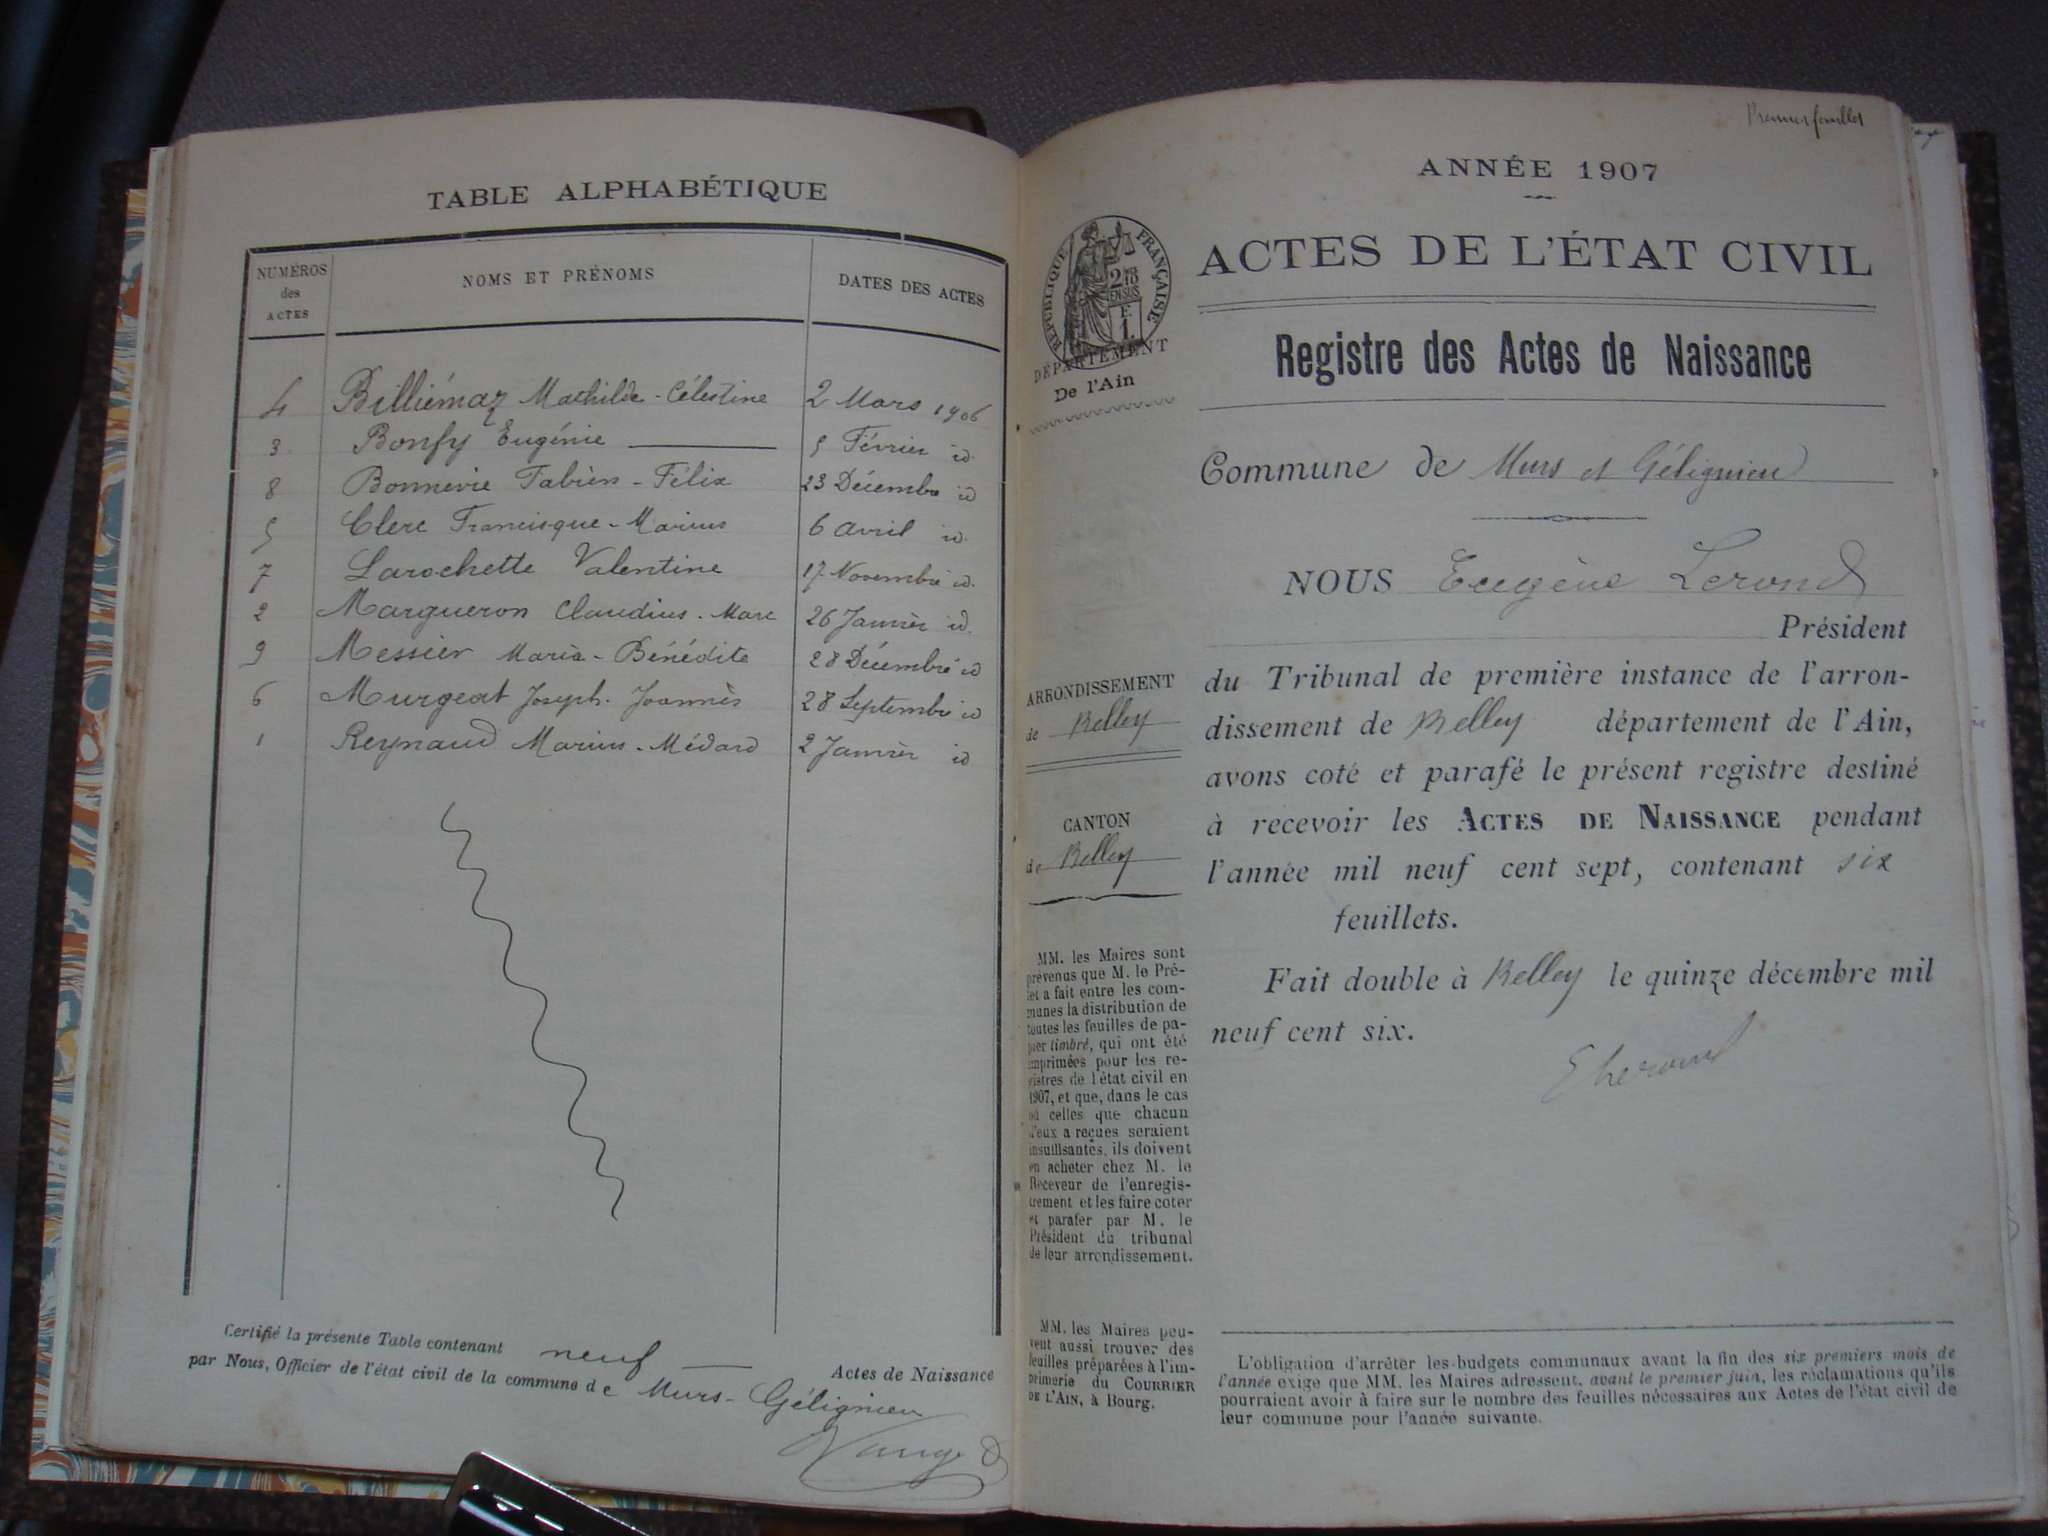 TABLE ALPHABÉTIQUE
NUMÉROS des ACTES NOMS ET PRÉNOMS DATES DES ACTES
4 Billiémaz Mathilde-Célestine 2 Mars 1906
3 Bonfy Eugénie 5 Février id
8 Bonnevie Fabien-Félix 23 Décembre id
5 Clerc Francisque-Marius 6 avril id
7 Larochette Valentine 17 Novembre id.
2 Margueron Claudius-Marc 26 Janvier id.
9 Messier Maria-Bénédite 28 Décembre id
6 Murgeat Joseph-Joannès 28 Septembre id
1 Reynaud Marius-Médard 2 Janvier id
Certifié la présente Table contenant neuf Actes de Naissance
par Nous, Officier de l'état civil de la commune de Murs-Gélignieu
Premier feuillet
ANNÉE 1907
ACTES DE L'ÉTAT CIVIL
RÉPUBLIQUE FRANÇAISE
DÉPARTEMENT
De l'Ain
Registre des Actes de Naissance
Commune de Murs et Gélignieu
NOUS Eugène Lerond
Président
du Tribunal de première instance de l'arron-
dissement de Belley département de l'Ain,
avons coté et parafé le présent registre destiné
à recevoir les ACTES DE NAISSANCE pendant
l'année mil neuf cent sept, contenant six
feuillets.
Fait double à Belley le quinze décembre mil
neuf cent six.
ELerond
ARRONDISSEMENT
de Belley
CANTON
de Belley
MM. les Maires sont
prévenus que M. le Pré-
fet a fait entre les com-
munes la distribution de
toutes les feuilles de pa-
pier timbré, qui ont été
imprimées pour les re-
gistres de l'état civil en
1907, et que, dans le cas
où celles que chacun
d'eux a reçues seraient
insuffisantes, ils doivent
en acheter chez M. le
Receveur de l'enregis-
trement et les faire coter
et parafer par M. le
Président du tribunal
de leur arrondissement.
MM. les Maires peu-
vent aussi trouver des
feuilles préparées à l'im-
primerie du COURRIER
DE L'AIN, à Bourg.
L'obligation d'arrêter les budgets communaux avant la fin des six premiers mois de
l'année exige que MM. les Maires adressent, avant le premier juin, les réclamations qu'ils
pourraient avoir à faire sur le nombre des feuilles nécessaires aux Actes de l'état civil de
leur commune pour l'année suivante.